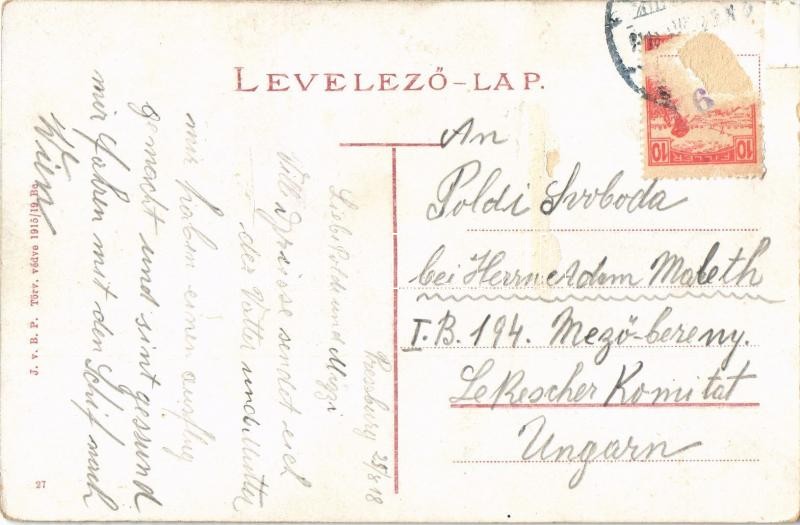 LEVELEZŐ-LAP.
An
Poldi Svoboda
bei Herrn Adam Mabeth
I.B. 194. Mező-bereny.
Bekescher Komitat
Ungarn
Pressburg 25/8 18
Liebe Poldi und Mizzi
Vill Grüsse sendet euch
der Vatter und Mutter
mir haben einen ausflug
gemacht und sint gessund
mir fahren mit den Schif nach
Wien
J. v. B. P. Törv. védve 1915/19 Bc.
27
10 FILLÉR 10
6